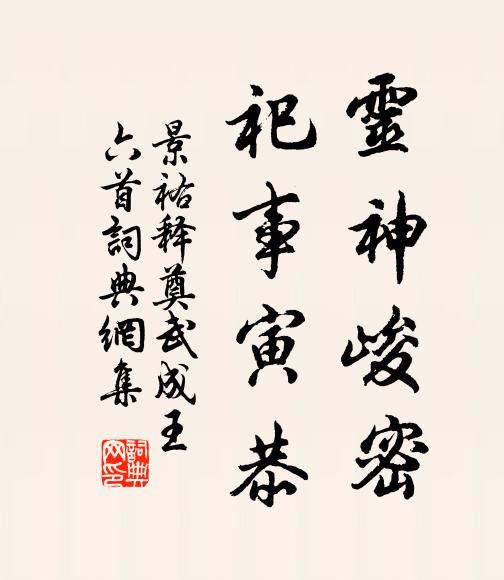 靈神峻密
祀事寅恭
景祐释奠武成王
六首詞典網集
詞典网印